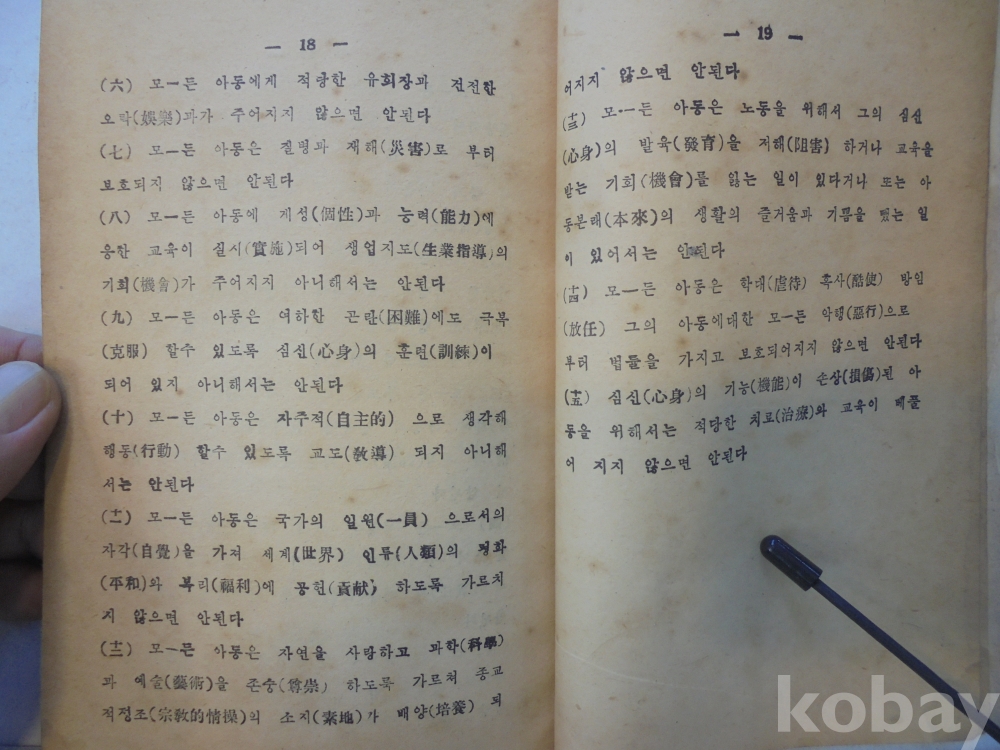 — 18 —
(六) 모—든 아동에게 적당한 유희장과 건전한
오락(娛樂)과가 주어지지 않으면 안된다
(七) 모—든 아동은 질병과 재해(災害)로 부터
보호되지 않으면 안된다
(八) 모—든 아동에 개성(個性)과 능력(能力)에
응한 교육이 실시(實施)되어 생업지도(生業指導)의
기회(機會)가 주어지지 아니해서는 안된다
(九) 모—든 아동은 여하한 곤란(困難)에도 극복
(克服) 할수 있도록 심신(心身)의 훈련(訓練)이
되어 있지 아니해서는 안된다
(十) 모—든 아동은 자주적(自主的) 으로 생각해
행동(行動) 할수 있도록 교도(敎導) 되지 아니해
서는 안된다
(十一) 모—든 아동은 국가의 일원(一員) 으로서의
자각(自覺)을 가져 세계(世界) 인류(人類)의 평화
(平和)와 복리(福利)에 공헌(貢献) 하도록 가르치
지 않으면 안된다
(十二) 모—든 아동은 자연을 사랑하고 과학(科學)
과 예술(藝術)을 존숭(尊崇) 하도록 가르처 종교
적정조(宗敎的情操)의 소지(素地)가 배양(培養) 되
— 19 —
어지지 않으면 안된다
(十三) 모—든 아동은 노동을 위해서 그의 심신
(心身)의 발육(發育)을 저해(阻害) 하거나 교육을
받는 기회(機會)를 잃는 일이 있다거나 또는 아
동본래(本來)의 생활의 즐거움과 기쁨을 뺐는 일
이 있어서는 안된다
(十四) 모—든 아동은 학대(虐待) 혹사(酷使) 방임
(放任) 그의 아동에대한 모—든 악행(惡行)으로
부터 법들을 가지고 보호되어지지 않으면 안된다
(十五) 심신(心身)의 기능(機能)이 손상(損傷)된 아
동을 위해서는 적당한 치료(治療)와 교육이 베풀
어 지지 않으면 안된다
kobay